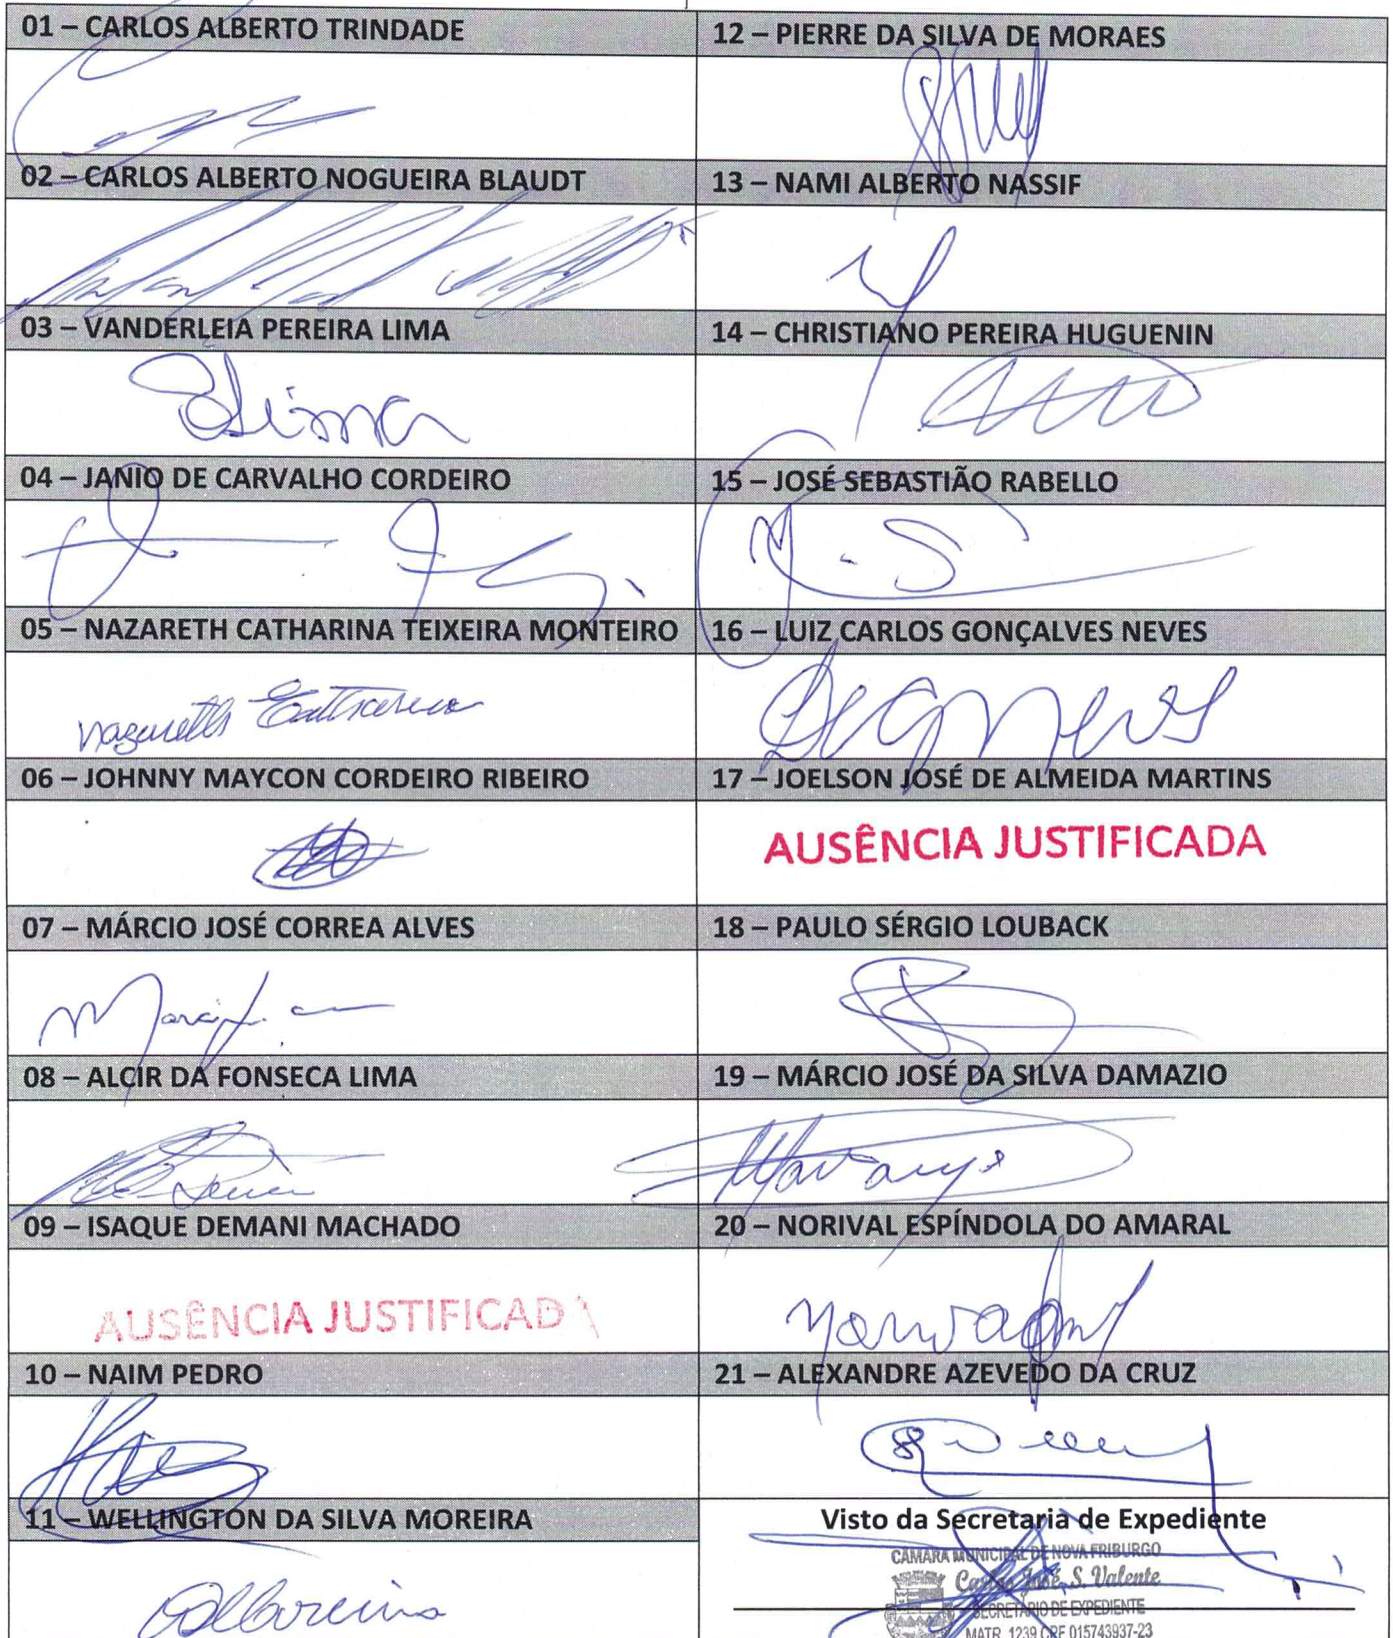 01 – CARLOS ALBERTO TRINDADE
02 – CARLOS ALBERTO NOGUEIRA BLAUDT
03 – VANDERLEIA PEREIRA LIMA
04 – JANIO DE CARVALHO CORDEIRO
05 – NAZARETH CATHARINA TEIXEIRA MONTEIRO
Nazareth Catharina
06 – JOHNNY MAYCON CORDEIRO RIBEIRO
07 – MÁRCIO JOSÉ CORREA ALVES
08 – ALCIR DA FONSECA LIMA
09 – ISAQUE DEMANI MACHADO
AUSÊNCIA JUSTIFICADA
10 – NAIM PEDRO
11 – WELLINGTON DA SILVA MOREIRA
12 – PIERRE DA SILVA DE MORAES
13 – NAMI ALBERTO NASSIF
14 – CHRISTIANO PEREIRA HUGUENIN
15 – JOSÉ SEBASTIÃO RABELLO
16 – LUIZ CARLOS GONÇALVES NEVES
17 – JOELSON JOSÉ DE ALMEIDA MARTINS
AUSÊNCIA JUSTIFICADA
18 – PAULO SÉRGIO LOUBACK
19 – MÁRCIO JOSÉ DA SILVA DAMAZIO
20 – NORIVAL ESPÍNDOLA DO AMARAL
21 – ALEXANDRE AZEVEDO DA CRUZ
Visto da Secretaria de Expediente
CÂMARA MUNICIPAL DE NOVA FRIBURGO
Carlos José S. Valente
SECRETÁRIO DE EXPEDIENTE
MATR. 1239 CPF 015743937-23